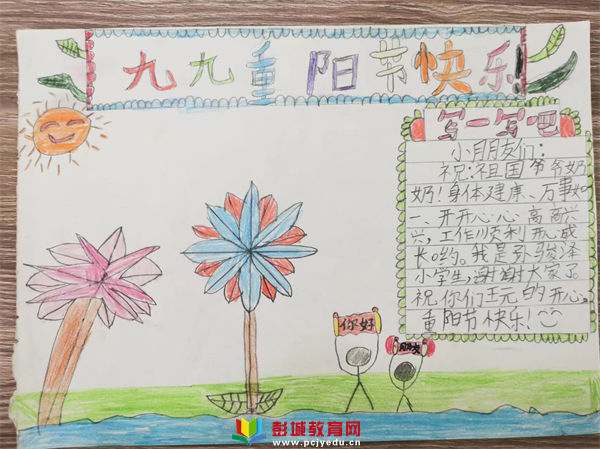 九九重阳节快乐!
写一写吧
小月朋友们:
祝:祖国爷爷奶
奶!身体建康、万事如
一、开开心心高高兴
兴,工作顺利开心成
长o约。我是孙骏泽
小学生,谢谢大家了
祝你们玩的开心。
重阳节快乐!
你好
朋友
彭城教育网
www.pcjyedu.cn